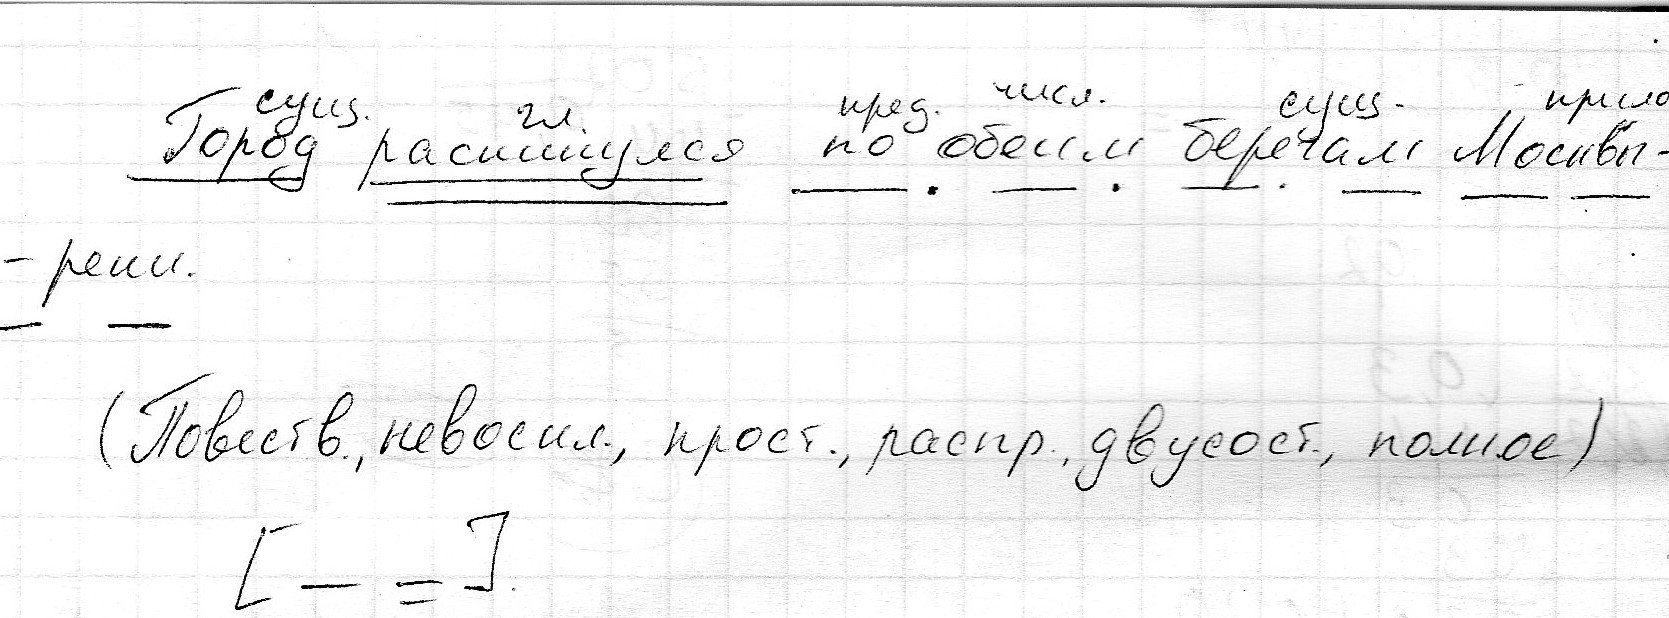 сущ. гл. пред. числ. сущ. прило
Город раскинулся по обеим берегам Москвы-
-реки.
(Повеств., невоскл., прост., распр., двусост., полное)
[ — = ].